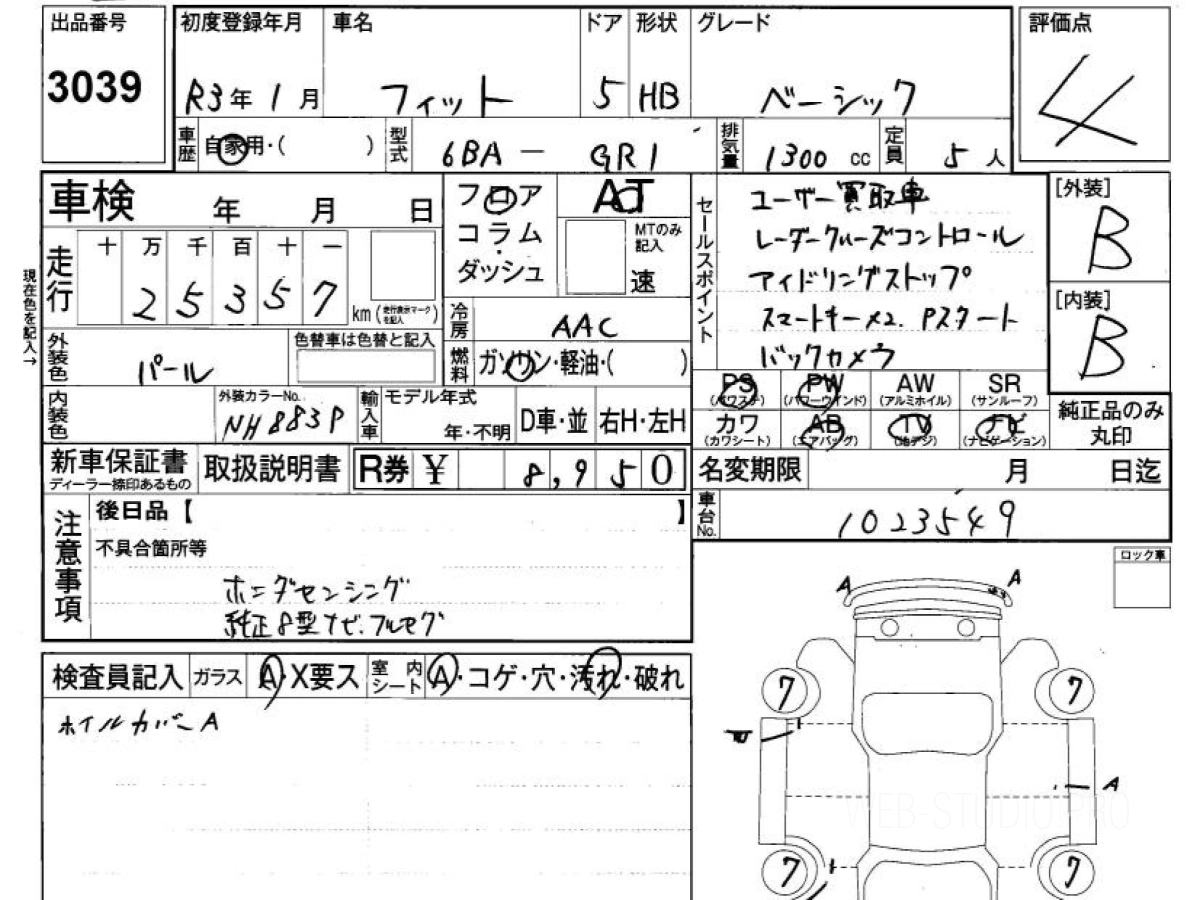 出品番号 初度登録年月 車名 ドア 形状 グレード 評価点
3039 R3年 1月 フィット 5 HB ベーシック 4
車歴 自家用・( ) 型式 6BA － GR1 排気量 1300 cc 定員 5 人
車検 年 月 日
フロア・コラム・ダッシュ AT
MTのみ記入 速
現在色を記入→
走行 十 万 千 百 十 一
2 5 3 5 7 km (走行表示マークを記入)
冷房 AAC
外装色 パール 色替車は色替と記入
燃料 ガソリン・軽油・( )
内装色 外装カラーNo. NH883P
輸入車 モデル年式 年・不明 D車・並 右H・左H
セールスポイント
ユーザー買取車
レーダークルーズコントロール
アイドリングストップ
スマートキー×2. Pスタート
バックカメラ
[外装] B
[内装] B
PS (パワステ) PW (パワーウインド) AW (アルミホイル) SR (サンルーフ)
カワ (カワシート) AB (エアバッグ) TV (地デジ) ナビ (ナビゲーション)
純正品のみ丸印
新車保証書 ディーラー捺印あるもの 取扱説明書 R券 ¥ 8,950
名変期限 月 日迄
車台No. 1023549
注意事項
後日品【 】
不具合箇所等
ホンダセンシング
純正8型ナビ.フルセグ
ロック車
検査員記入 ガラス A・X要ス 室内シート A・コゲ・穴・汚れ・破れ
ホイルカバーA
A A
7 7
A
7 7
WEB-STUDIO.PRO